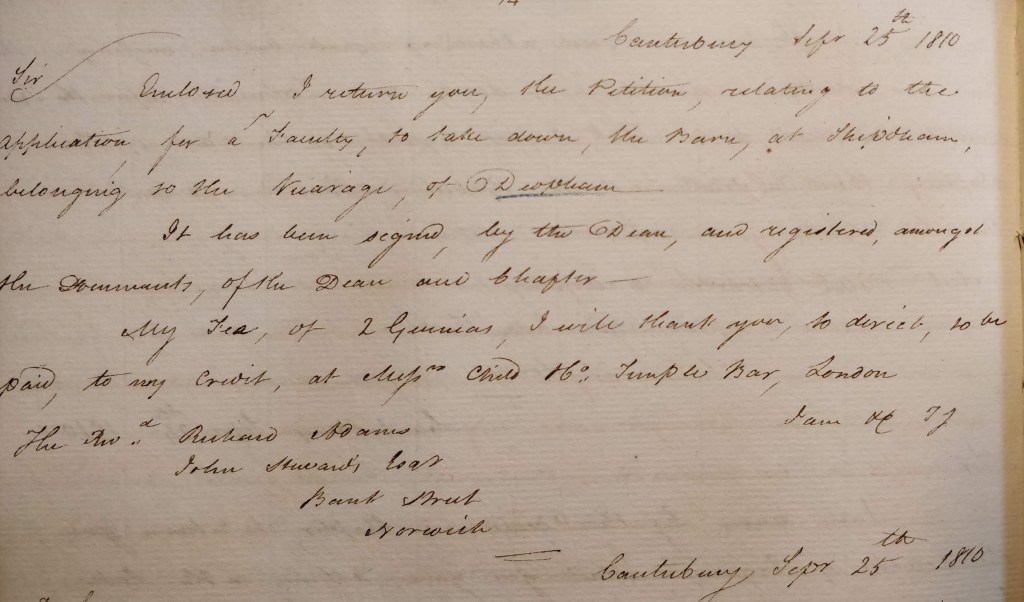 Canterbury Sepr 25th 1810
Sir
Enclosed I return you, the Petition, relating to the
Application, for a Faculty, to take down, the Barn, at Shipdham,
belonging to the Vicarage, of Deopham
It has been signd, by the Dean, and registered, amongst
the Documents, of the Dean and Chapter —
My Fee, of 2 Guineas, I will thank you, to direct, to be
paid, to my Credit, at Messrs Child & Co. Temple Bar, London
I am &c
The Revd. Richard Adams
John Stewards Esqr
Bank Street
Norwich
Canterbury Sepr 25th 1810